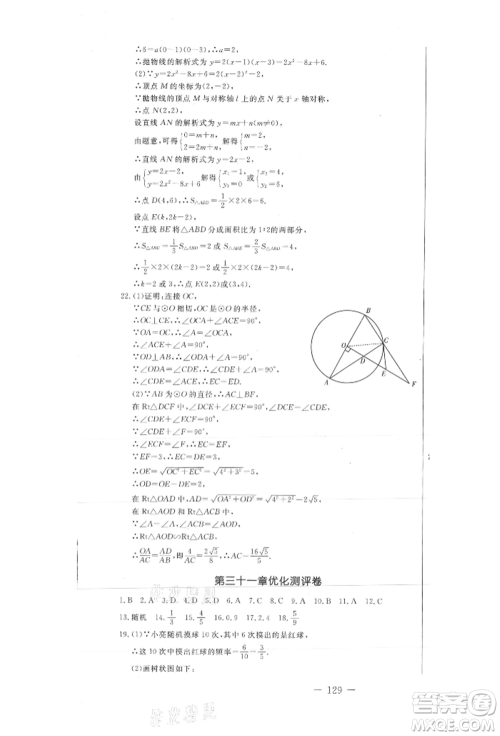 ∴6=a(0-1)(0-3),∴a=2,
∴抛物线的解析式为 y=2(x-1)(x-3)=2x²-8x+6.
(2)∵y=2x²-8x+6=2(x-2)²-2,
∴顶点 M 的坐标为(2,-2).
∵抛物线的顶点 M 与对称轴 l 上的点 N 关于 x 轴对称,
∴点 N(2,2).
设直线 AN 的解析式为 y=mx+n(m≠0).
由题意,可得{0=m+n, 2=2m+n, 解得{m=2, n=-2.
∴直线 AN 的解析式为 y=2x-2.
由{y=2x-2, y=2x²-8x+6, 解得{x=4, y=6 或{x=1, y=0.
∴点 D(4,6),∴S△ABD=1/2×2×6=6.
设点 E(k,2k-2).
∵直线 BE 将△ABD 分成面积比为 1:2 的两部分,
∴S△ABE=1/3S△ABD=2 或 S△ABE=2/3S△ABD=4,
∴1/2×2×(2k-2)=2 或 1/2×2×(2k-2)=4,
∴k=2 或 3,∴点 E(2,2)或(3,4).
22. (1)证明:连接 OC,
∵CE 与 ⊙O 相切,OC 是 ⊙O 的半径,
∴OC⊥CE,∴∠OCA+∠ACE=90°.
∵OA=OC,∴∠A=∠OCA,
∴∠ACE+∠A=90°.
∵OD⊥AB,∴∠ODA+∠A=90°.
∵∠ODA=∠CDE,∴∠CDE+∠A=90°,
∴∠CDE=∠ACE,∴EC=ED.
(2)∵AB 为⊙O 的直径,∴AC⊥BF.
在 Rt△DCF 中,∠DCE+∠ECF=90°,
又∠DCE=∠CDE,∴∠CDE+∠ECF=90°.
∵∠CDE+∠F=90°,
∴∠ECF=∠F,∴EC=EF.
∵EF=3,∴EC=DE=3,
∴OE=√OC²+EC²=√4²+3²=5,
∴OD=OE-DE=2.
在 Rt△OAD 中,AD=√OA²+OD²=√4²+2²=2√5.
在 Rt△AOD 和 Rt△ACB 中,
∵∠A=∠A,
∴Rt△AOD∽Rt△ACB,
∴OA/AC=AD/AB,即 4/AC=2√5/8,∴AC=16√5/5.
第三十一章优化测评卷
13. 随机 14. 1/3 15. 4/5 16. 9 17. 2,4 18. 5/9
19. (1)∵小亮随机摸球 10 次,其中 6 次摸出的是红球,
∴这 10 次中摸出红球的频率=6/10=3/5.
(2)画树状图如下:
— 129 —
B
O
C
D
E
A
F